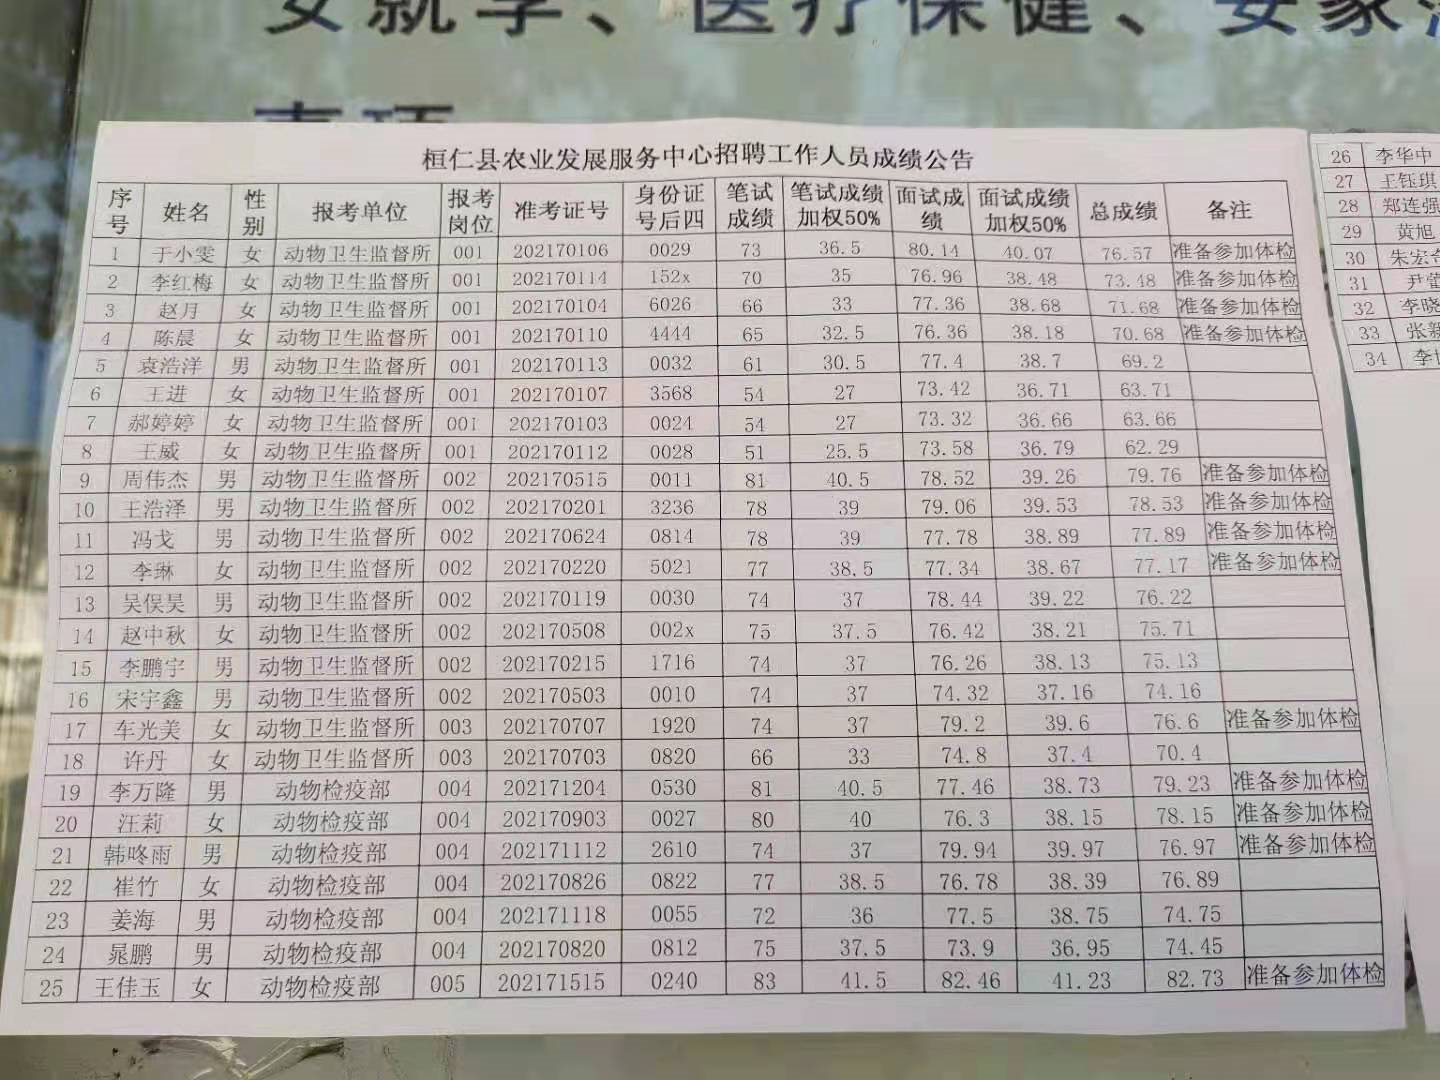 女就学、医疗保健、安家
事项
桓仁县农业发展服务中心招聘工作人员成绩公告
序号 姓名 性别 报考单位 报考岗位 准考证号 身份证号后四 笔试成绩 笔试成绩加权50% 面试成绩 面试成绩加权50% 总成绩 备注
1 于小雯 女 动物卫生监督所 001 202170106 0029 73 36.5 80.14 40.07 76.57 准备参加体检
2 李红梅 女 动物卫生监督所 001 202170114 152x 70 35 76.96 38.48 73.48 准备参加体检
3 赵月 女 动物卫生监督所 001 202170104 6026 66 33 77.36 38.68 71.68 准备参加体检
4 陈晨 女 动物卫生监督所 001 202170110 4444 65 32.5 76.36 38.18 70.68 准备参加体检
5 袁浩洋 男 动物卫生监督所 001 202170113 0032 61 30.5 77.4 38.7 69.2
6 王进 女 动物卫生监督所 001 202170107 3568 54 27 73.42 36.71 63.71
7 郝婷婷 女 动物卫生监督所 001 202170103 0024 54 27 73.32 36.66 63.66
8 王威 女 动物卫生监督所 001 202170112 0028 51 25.5 73.58 36.79 62.29
9 周伟杰 男 动物卫生监督所 002 202170515 0011 81 40.5 78.52 39.26 79.76 准备参加体检
10 王浩泽 男 动物卫生监督所 002 202170201 3236 78 39 79.06 39.53 78.53 准备参加体检
11 冯戈 男 动物卫生监督所 002 202170624 0814 78 39 77.78 38.89 77.89 准备参加体检
12 李琳 女 动物卫生监督所 002 202170220 5021 77 38.5 77.34 38.67 77.17 准备参加体检
13 吴俣昊 男 动物卫生监督所 002 202170119 0030 74 37 78.44 39.22 76.22
14 赵中秋 女 动物卫生监督所 002 202170508 002x 75 37.5 76.42 38.21 75.71
15 李鹏宇 男 动物卫生监督所 002 202170215 1716 74 37 76.26 38.13 75.13
16 宋宇鑫 男 动物卫生监督所 002 202170503 0010 74 37 74.32 37.16 74.16
17 车光美 女 动物卫生监督所 003 202170707 1920 74 37 79.2 39.6 76.6 准备参加体检
18 许丹 女 动物卫生监督所 003 202170703 0820 66 33 74.8 37.4 70.4
19 李万隆 男 动物检疫部 004 202171204 0530 81 40.5 77.46 38.73 79.23 准备参加体检
20 汪莉 女 动物检疫部 004 202170903 0027 80 40 76.3 38.15 78.15 准备参加体检
21 韩咚雨 男 动物检疫部 004 202171112 2610 74 37 79.94 39.97 76.97 准备参加体检
22 崔竹 女 动物检疫部 004 202170826 0822 77 38.5 76.78 38.39 76.89
23 姜海 男 动物检疫部 004 202171118 0055 72 36 77.5 38.75 74.75
24 晁鹏 男 动物检疫部 004 202170820 0812 75 37.5 73.9 36.95 74.45
25 王佳玉 女 动物检疫部 005 202171515 0240 83 41.5 82.46 41.23 82.73 准备参加体检
26 李华中
27 王钰琪
28 郑连强
29 黄旭
30 朱宏
31 尹
32 李晓
33 张新
34 李